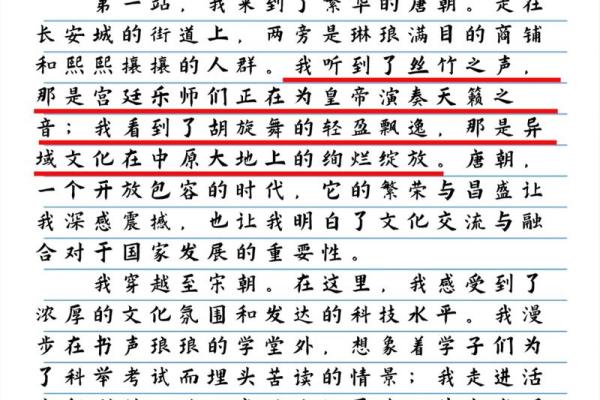 第一站，我来到了繁华的唐朝。走在
长安城的街道上，两旁是琳琅满目的商铺
和熙熙攘攘的人群。我听到了丝竹之声，
那是宫廷乐师们正在为皇帝演奏天籁之
音；我看到了胡旋舞的轻盈飘逸，那是异
域文化在中原大地上的绚烂绽放。唐朝，
一个开放包容的时代，它的繁荣与昌盛让
我深感震撼，也让我明白了文化交流与融
合对于国家发展的重要性。
我穿越至宋朝。在这里，我感受到了
浓厚的文化氛围和发达的科技水平。我漫
步在书声琅琅的学堂外，想象着学子们为
了科举考试而埋头苦读的情景；我走进活